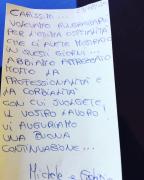 CARISSIMI ...
VOLEVAMO RINGRAZIARVI
PER L'OTTIMA OSPITALITÀ
CHE CI AVETE MOSTRATO
IN QUESTI GIORNI...
ABBIAMO APPREZZATO
MOLTO LA
PROFESSIONALITÀ E
LA CORDIALITÀ
CON CUI SVOLGETE
IL VOSTRO LAVORO,
VI AUGURIAMO
UNA BUONA
CONTINUAZIONE...
Michele e